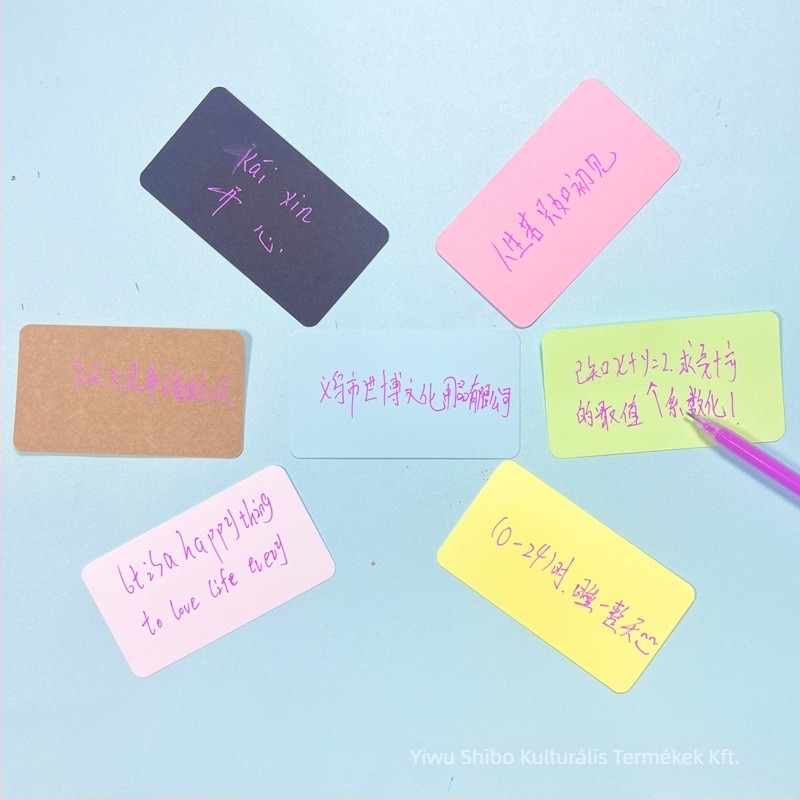 kāi xin
开 心
人生若只如初见
今天
义乌市世博文化用品有限公司
已知x+y=2.求
的取值 个系数化1
It is a happy thing
to love life every
(0-24)时.
一整天~
Yiwu Shibo Kulturális Termékek Kft.